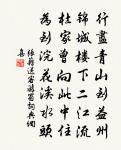 行盡青山到益州
錦城樓下二江流
杜家曾向此中住
為到浣花溪水頭
張籍送客游蜀詞典網
集